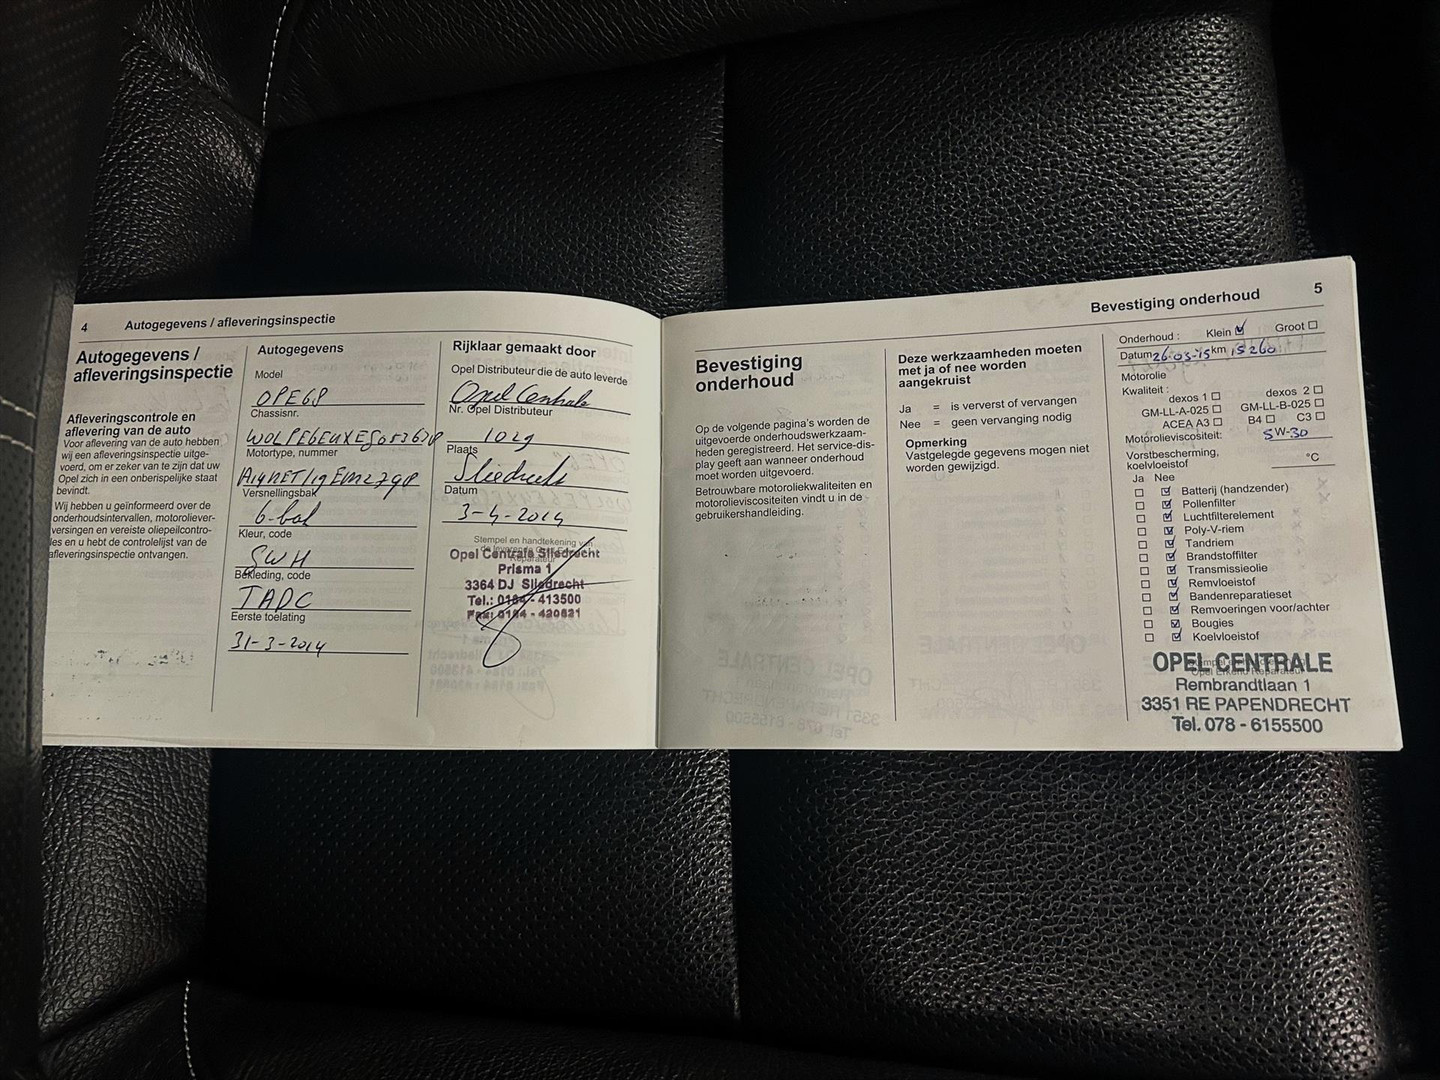 4 Autogegevens / afleveringsinspectie
Autogegevens /
afleveringsinspectie
Afleveringscontrole en
aflevering van de auto
Voor aflevering van de auto hebben
wij een afleveringsinspectie uitge-
voerd, om er zeker van te zijn dat uw
Opel zich in een onberispelijke staat
bevindt.
Wij hebben u geïnformeerd over de
onderhoudsintervallen, motoroliever-
versingen en vereiste oliepeilcontro-
les en u hebt de controlelijst van de
afleveringsinspectie ontvangen.
Autogegevens
Model
OPE68
Chassisnr.
Motortype, nummer
Versnellingsbak
6-bak
Kleur, code
GWH
Bekleding, code
TADC
Eerste toelating
31-3-2014
Rijklaar gemaakt door
Opel Distributeur die de auto leverde
Opel Centrale
Nr. Opel Distributeur
1029
Plaats
Sliedrecht
Datum
3-4-2014
Stempel en handtekening van
Opel Centrale Sliedrecht
Prisma 1
3364 DJ Sliedrecht
Tel.: 0184 - 413500
Fax: 0184 - 420621
Bevestiging onderhoud 5
Bevestiging
onderhoud
Op de volgende pagina's worden de
uitgevoerde onderhoudswerkzaam-
heden geregistreerd. Het service-dis-
play geeft aan wanneer onderhoud
moet worden uitgevoerd.
Betrouwbare motoroliekwaliteiten en
motorolieviscositeiten vindt u in de
gebruikershandleiding.
Deze werkzaamheden moeten
met ja of nee worden
aangekruist
Ja = is ververst of vervangen
Nee = geen vervanging nodig
Opmerking
Vastgelegde gegevens mogen niet
worden gewijzigd.
Onderhoud : Klein ☑ Groot ☐
Datum 26-03-15 km 15260
Motorolie
Kwaliteit :
dexos 1 ☐ dexos 2 ☐
GM-LL-A-025 ☐ GM-LL-B-025 ☐
ACEA A3 ☐ B4 ☐ C3 ☐
Motorolieviscositeit: 5W-30
Vorstbescherming,
koelvloeistof °C
Ja Nee
☐ ☑ Batterij (handzender)
☐ ☑ Pollenfilter
☐ ☑ Luchtfilterelement
☐ ☑ Poly-V-riem
☐ ☑ Tandriem
☐ ☑ Brandstoffilter
☐ ☑ Transmissieolie
☐ ☑ Remvloeistof
☐ ☑ Bandenreparatieset
☐ ☑ Remvoeringen voor/achter
☐ ☑ Bougies
☐ ☑ Koelvloeistof
OPEL CENTRALE
Rembrandtlaan 1
3351 RE PAPENDRECHT
Tel. 078 - 6155500